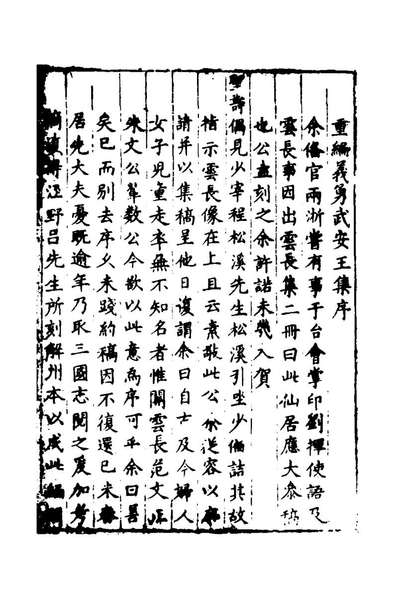 重編義勇武安王集序
余備官兩浙嘗有事于台會掌印劉揮使語及
雲長事因出雲長集二冊曰此仙居應大參稿
也公盍刻之余許諾未幾入賀
聖壽偶見少宰程松溪先生松溪引坐少偏詰其故
指示雲長像在上且云素敬此公從容以
請并以集稿呈他日復謂余曰自士及今婦人
女子兒童走卒無不知名者惟關雲長范文正
朱文公輩數公今欲以此意為序可乎余曰善
矣已而別去序久未踐約稿因不復還已未春
居先大夫憂既逾年乃取三國志閱之爰加考
涇野呂先生所刻解州本以成此編